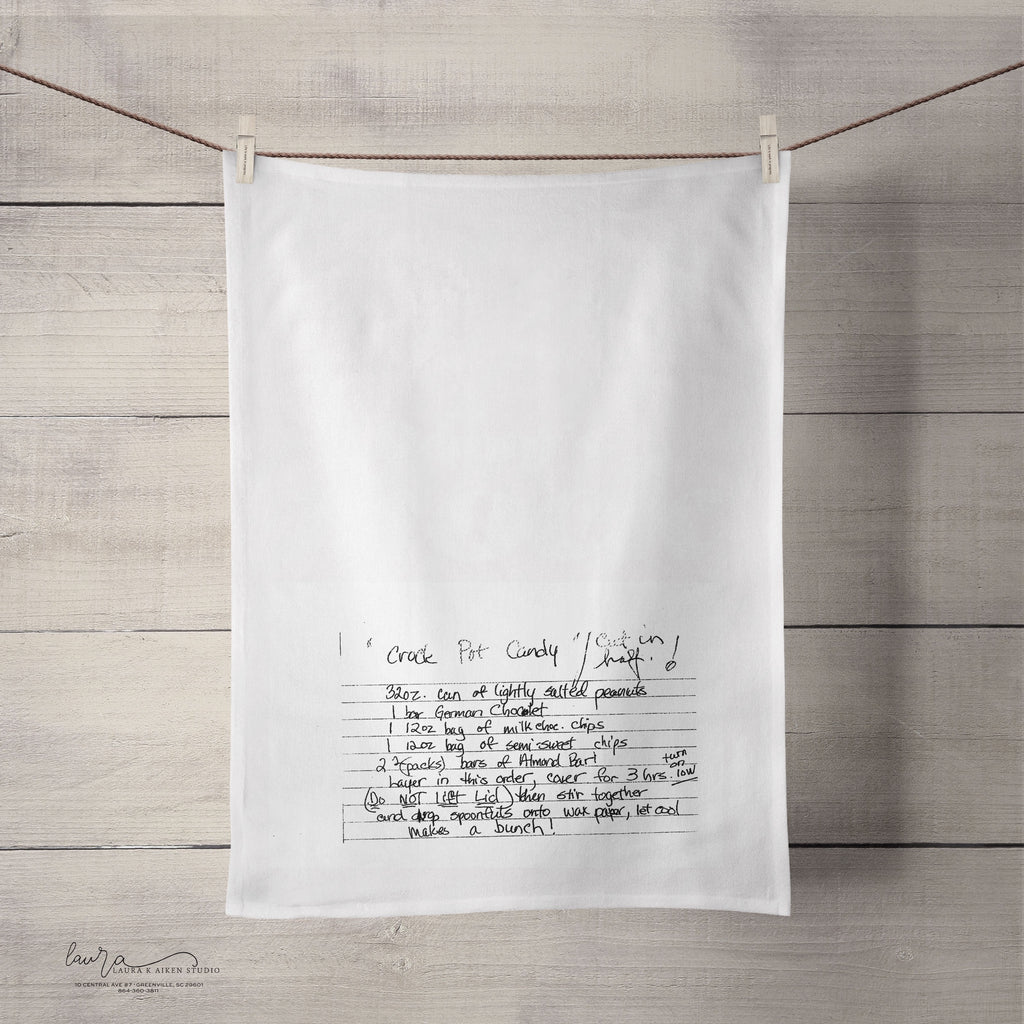 "Crock Pot Candy" / Cut in
half. !
32oz. can of lightly salted peanuts
1 bar German Chocolet
1 12oz bag of milk choc. chips
1 12oz bag of semi-sweet chips
2 (packs) bars of Almond Bark
Layer in this order, cover for 3 hrs. turn on low
(Do NOT lift Lid) then stir together
and drop spoonfuls onto wax paper, let cool
makes a bunch!
laura
LAURA K AIKEN STUDIO
10 CENTRAL AVE #7 • GREENVILLE, SC 29601
864-360-3811